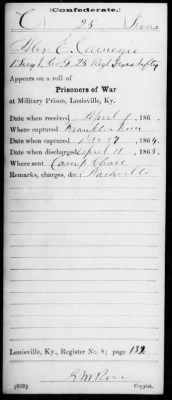 (Confederate.)
C 25 Texas
Alex E. Carnegie
Appears on a roll of
Prisoners of War
at Military Prison, Louisville, Ky.
Date when received April , 186 .
Where captured Franklin Tenn
Date when captured Dec 17, 1864.
Date when discharged April 10, 1865.
Where sent Camp Chase
Remarks, charges, &c.: Nashville
Louisville, Ky., Register No. 8; page 132
(639) Copyist.